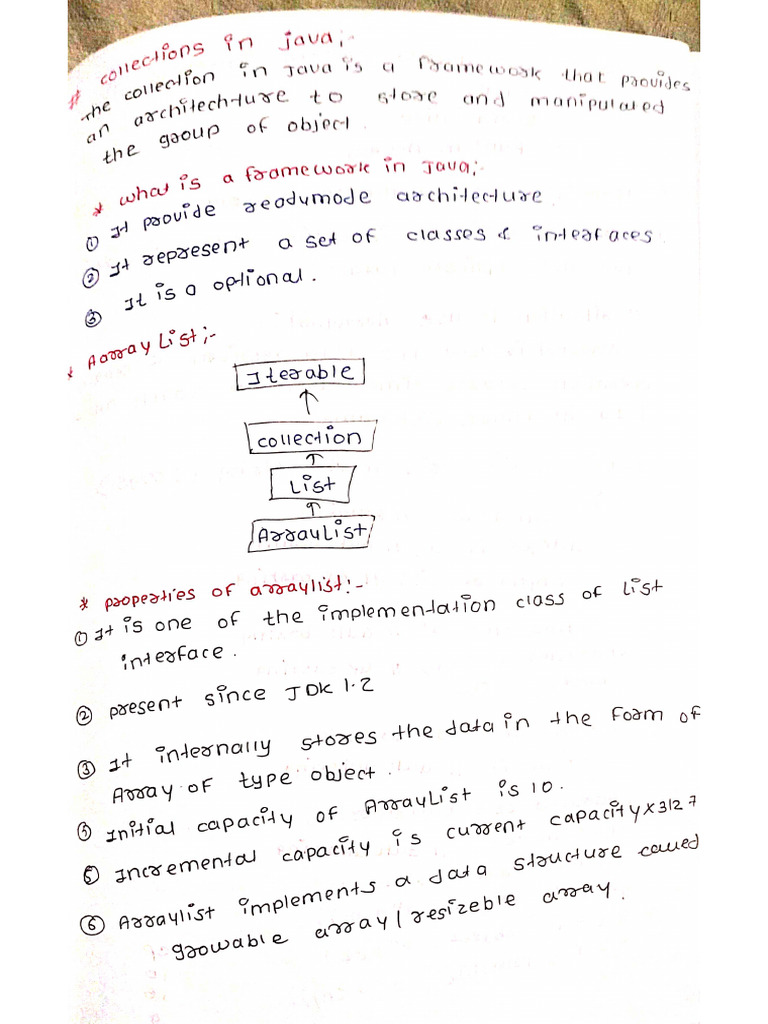 # collections in java:-
The collection in Java is a framework that provides
an architechture to store and manipulated
the group of object.
* what is a framework in Java:-
① It provide readymode architecture.
② It represent a set of classes & interfaces
③ It is a optional.
* Aarray List:-
Iterable
collection
List
ArrayList
* properties of arraylist:-
① It is one of the implementation class of list
interface.
② present since JDK 1.2
③ It internally stores the data in the form of
Array of type object.
Initial capacity of ArrayList is 10.
⑤ Incremental capacity is current capacity x 3/2
⑥ Arraylist implements a data structure called
growable array / resizeble array.